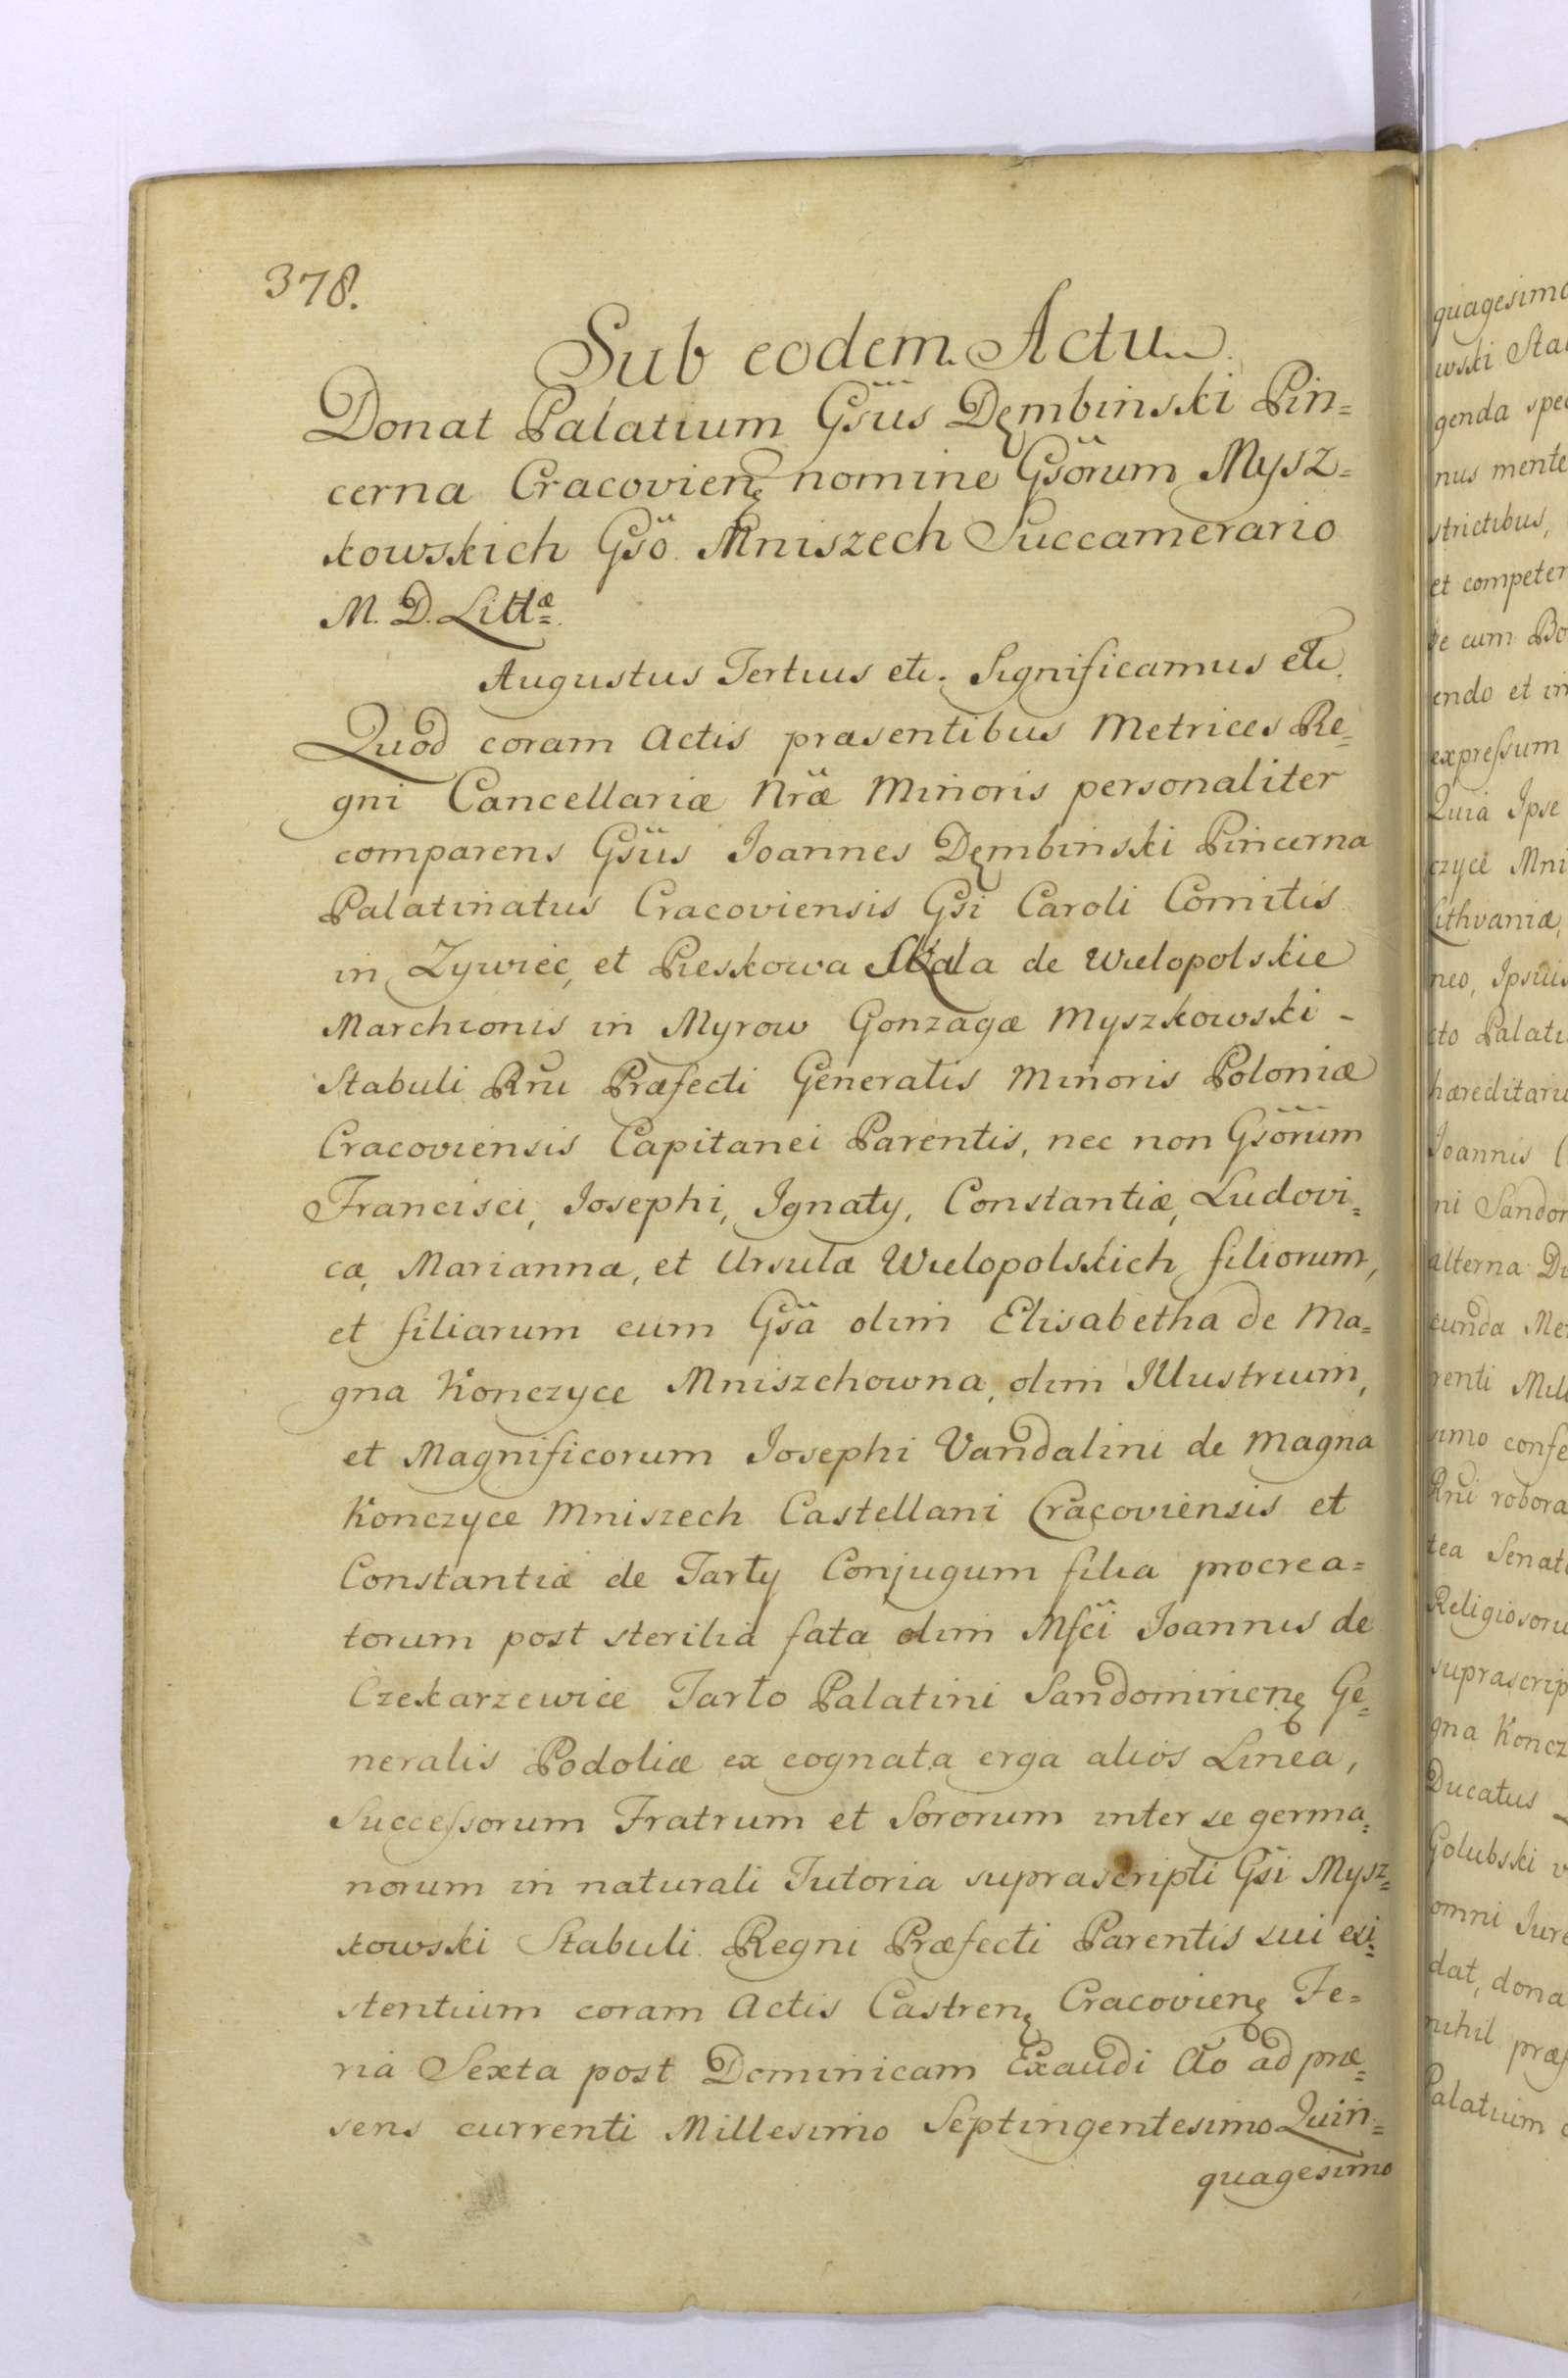 378.
Sub eodem Actu
Donat Palatium Gsüs Dęmbinski Pin=
cerna Cracovienę nomine Gsörum Mysz=
kowskich Gsö Mniszech Succamerario
M. D. Littæ.
Augustus Tertius etc. Significamus etc.
Quod coram Actis præsentibus Metrices Re=
gni Cancellariæ Nræ Minoris personaliter
comparens Gsüs Joannes Dęmbinski Pincerna
Palatinatus Cracoviensis Gsi Caroli Comitis
in Zywiec, et Pieskowa Skala de Wielopolskie
Marchionis in Myrow Gonzagæ Myszkowski -
Stabuli Rni Præfecti Generalis Minoris Poloniæ
Cracoviensis Capitanei Parentis, nec non Gsörum
Francisci, Josephi, Ignaty, Constantiæ, Ludovi=
cæ, Mariannæ, et Ursulæ Wielopolskich filiorum,
et filiarum cum Gsä olim Elisabetha de Ma=
gna Konczyce Mniszchowna, olim Illustrium,
et Magnificorum Josephi Vandalini de Magna
Konczyce Mniszech Castellani Cracoviensis et
Constantiæ de Tarły Conjugum filia procrea=
torum post sterilia fata olim Mfci Joannis de
Czekarzewice Tarło Palatini Sandomirienę Ge=
neralis Podoliæ ex cognata erga alios Linea,
Successorum Fratrum et Sororum inter se germa=
norum in naturali Tutoria suprascripti Gsi Mysz=
kowski Stabuli Regni Præfecti Parentis sui exi=
stentium coram Actis Castrenę Cracovienę Fe=
ria Sexta post Dominicam Exaudi Ao ad præ=
sens currenti Millesimo Septingentesimo Quin=
quagesimo
quagesimo
wski Sta
genda spe
nus mente
strictibus,
et competer
cum Bo
endo et in
expressum
Quia Ipse
czyce Mni
Lithvaniæ,
neo, Ipsius
cto Palati
hæreditari
Joannis
ni Sandor
alterna
cunda Me
renti Mill
imo confe
Rni robora
tea Senat
Religiosoru
suprascrip
gna Koncz
Ducatus
Golubski
omni Jure
dat, dona
nihil præ
Palatium